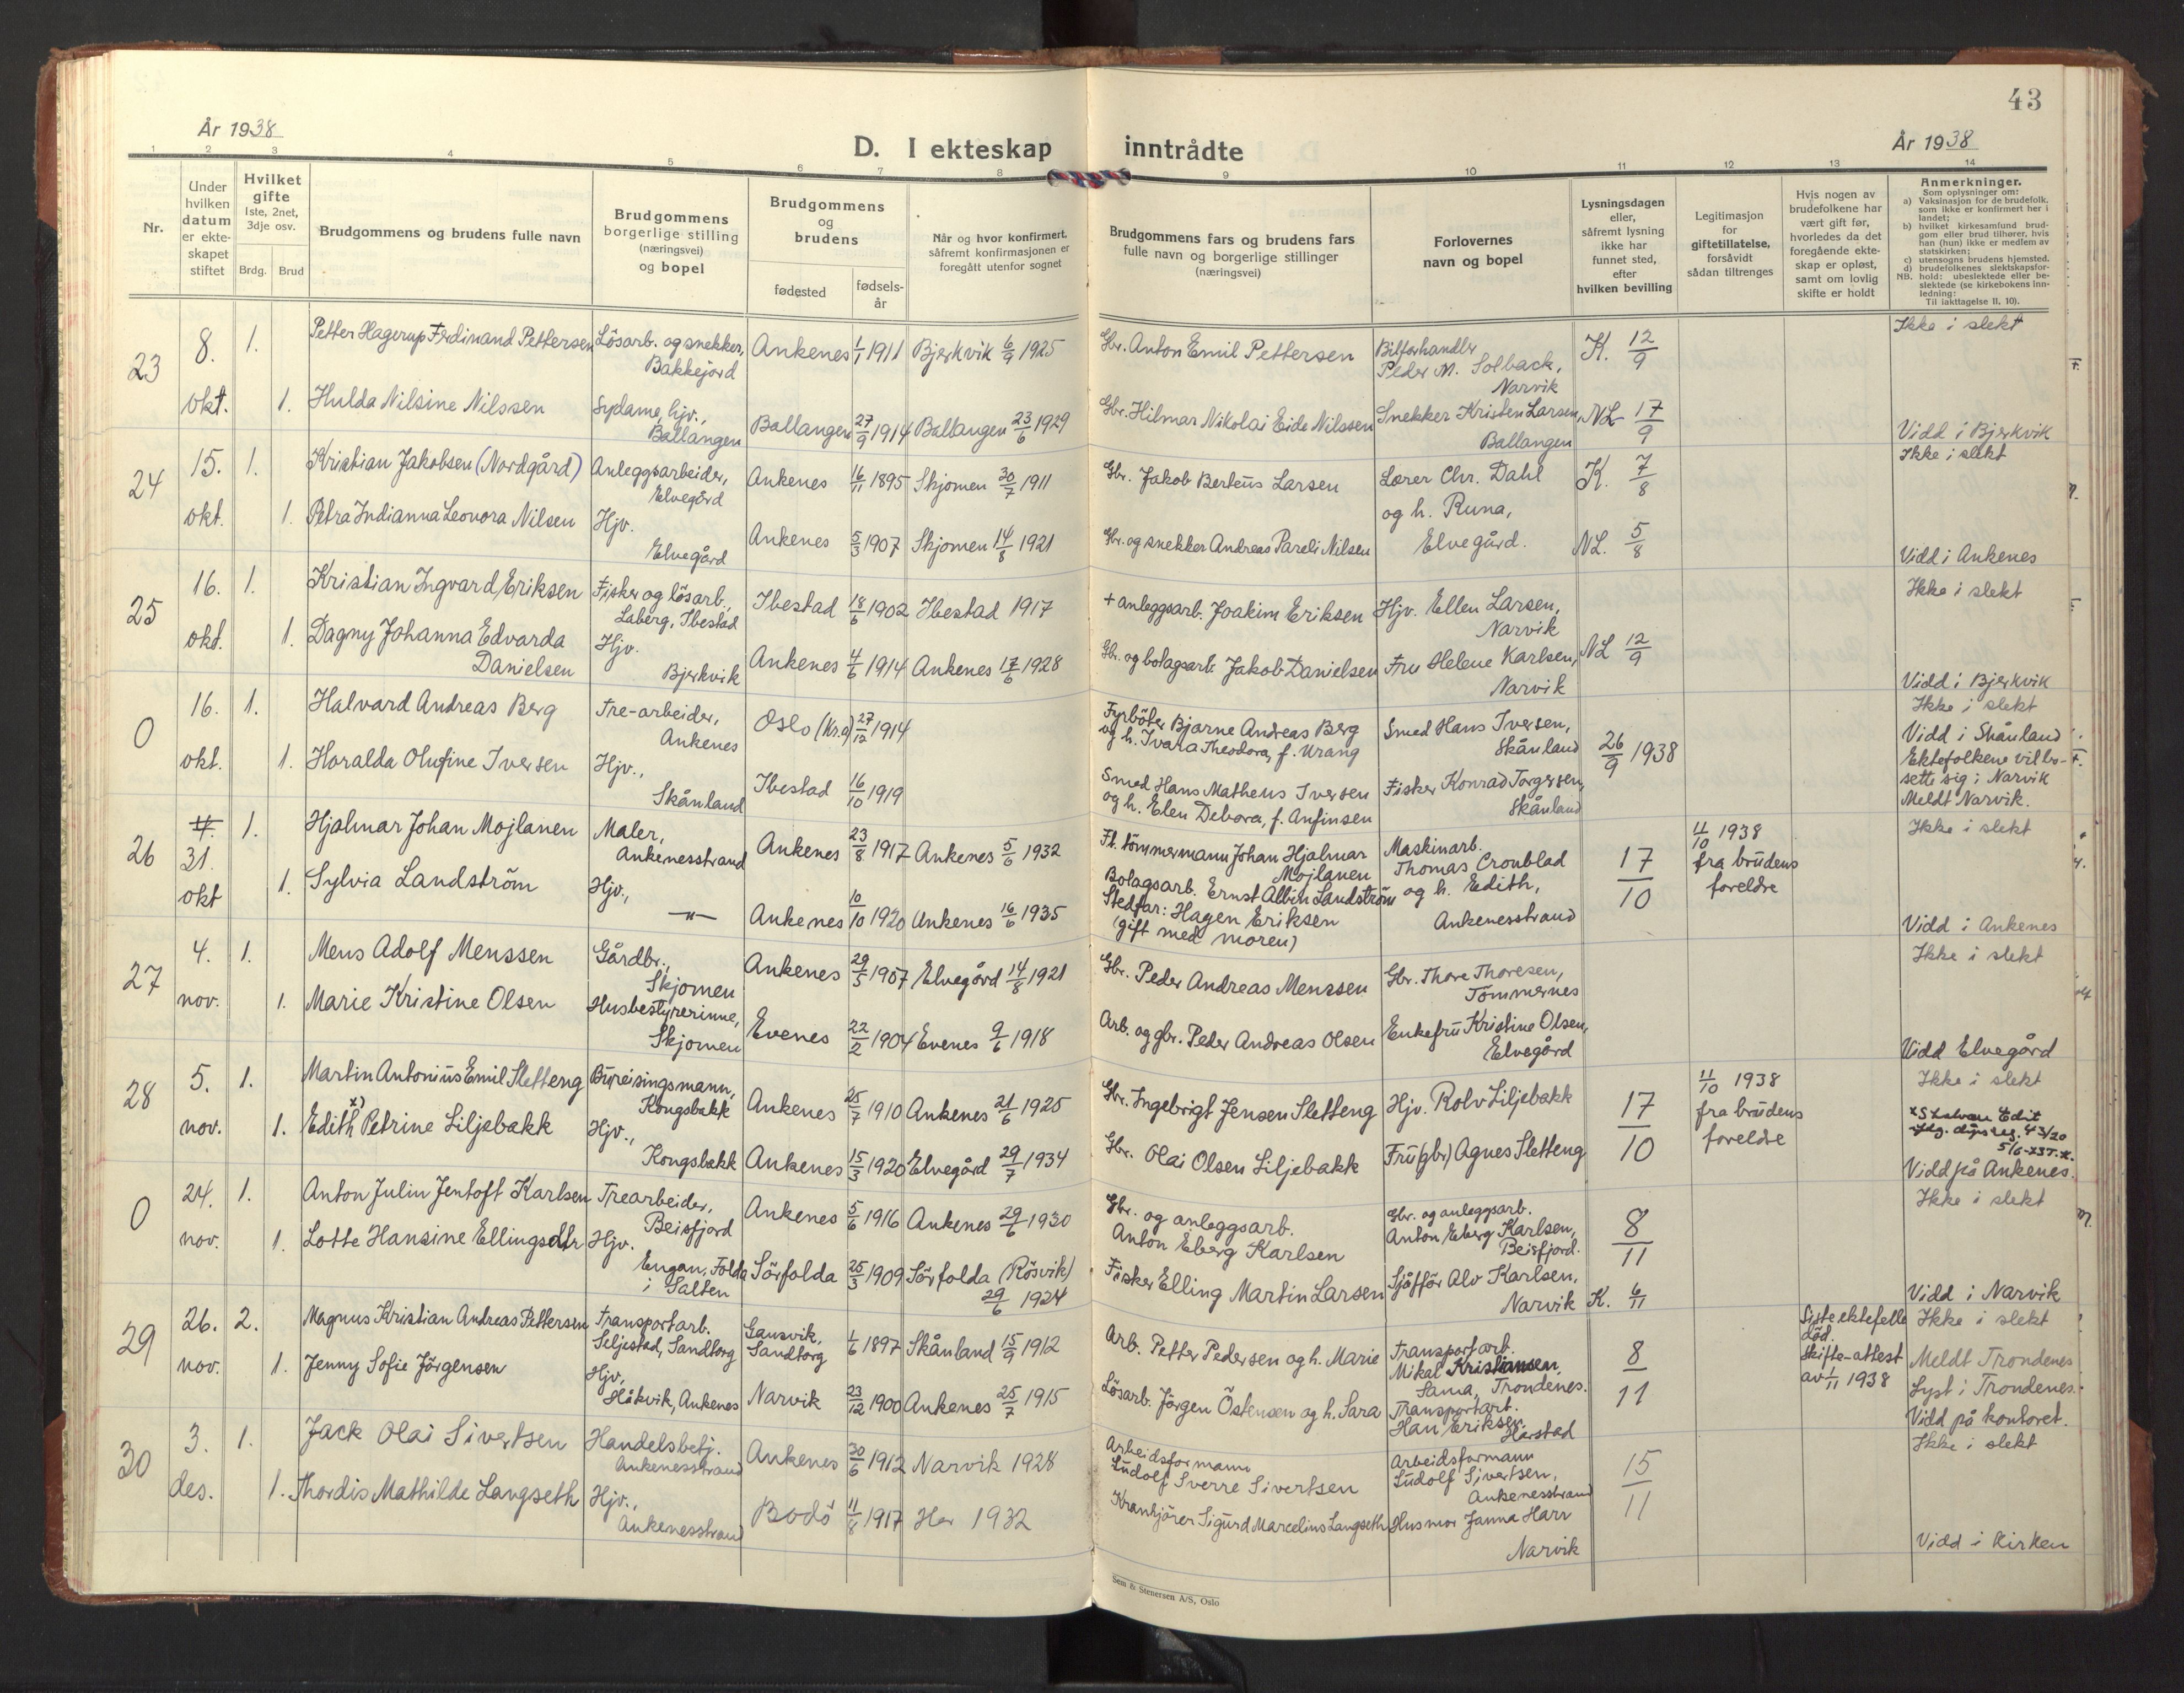 43
År 1938
D. I ekteskap inntrådte
År 1938
1 2 3 4 5 6 7 8 9 10 11 12 13 14
Nr.
Under
hvilken
datum
er ekte-
skapet
stiftet
Hvilket
gifte
1ste, 2net,
3dje osv.
Brdg. Brud
Brudgommens og brudens fulle navn
Brudgommens
borgerlige stilling
(næringsvei)
og bopel
Brudgommens
og
brudens
fødested
fødsels-
år
Når og hvor konfirmert,
såfremt konfirmasjonen er
foregått utenfor sognet
Brudgommens fars og brudens fars
fulle navn og borgerlige stillinger
(næringsvei)
Forlovernes
navn og bopel
Lysningsdagen
eller,
såfremt lysning
ikke har
funnet sted,
efter
hvilken bevilling
Legitimasjon
for
giftetillatelse,
forsåvidt
sådan tiltrenges
Hvis nogen av
brudefolkene har
vært gift før,
hvorledes da det
foregående ekte-
skap er opløst,
samt om lovlig
skifte er holdt
Anmerkninger.
Som oplysninger om:
a) Vaksinasjon for de brudefolk,
som ikke er konfirmert her i
landet;
b) hvilket kirkesamfund brud-
gom eller brud tilhører, hvis
han (hun) ikke er medlem av
statskirken;
c) utensogns brudens hjemsted.
d) brudefolkenes slektskapsfor-
NB. hold: ubeslektede eller be-
slektede (se kirkebokens inn-
ledning:
Til iakttagelse II, 10).
23
8.
okt.
1.
Petter Hagerup Ferdinand Pettersen
Lösarb. og snekker,
Bakkejord
Ankenes 1/1 1911 Bjerkvik 6/9 1925
Gbr. Anton Emil Pettersen
Bilforhandler
Peder M. Solback,
Narvik
K. 12/9
Ikke i slekt
1.
Hulda Nilsine Nilssen
Sydame, hjv.,
Ballangen
Ballangen 27/9 1914 Ballangen 23/6 1929
Gbr. Hilmar Nikolai Eide Nilssen
Snekker Kristen Larsen,
Ballangen
NL 17/9
Vidd i Bjerkvik
24
15.
okt.
1.
Kristian Jakobsen (Nordgård)
Anleggsarbeider,
Elvegård
Ankenes 16/11 1895 Skjomen 30/7 1911
Gbr. Jakob Berteus Larsen
Lærer Chr. Dahl
og h. Runa,
Elvegård.
K. 7/8
Ikke i slekt
1.
Petra Indianna Leonora Nilsen
Hjv.
Elvegård
Ankenes 5/3 1907 Skjomen 14/8 1921
Gbr. og snekker Andreas Pareli Nilsen
NL. 5/8
Vidd i Ankenes
25
16.
okt.
1.
Kristian Ingvard Eriksen
Fisker og lösarb.,
Laberg, Ibestad
Ibestad 18/6 1902 Ibestad 1917
+ anleggsarb. Joakim Eriksen
Hjv. Ellen Larsen,
Narvik
Ikke i slekt
1.
Dagny Johanna Edvarda
Danielsen
Hjv.
Bjerkvik
Ankenes 4/6 1914 Ankenes 17/6 1928
Gbr. og bolagsarb. Jakob Danielsen
Fru Helene Karlsen,
Narvik
NL 12/9
Vidd i Bjerkvik
0
16.
okt.
1.
Halvard Andreas Berg
Tre-arbeider,
Ankenes
Oslo (Kr.a) 27/12 1914
Fyrböter Bjarne Andreas Berg
og h. Ivara Theodora, f. Urang
Smed Hans Iversen,
Skånland
26/9 1938
Ikke i slekt
Vidd i Skånland
Ektefolkene vil bo-
sette sig i Narvik
Meldt Narvik.
1.
Horalda Olufine Iversen
Hjv.,
Skånland
Ibestad 16/10 1919
Smed Hans Matheus Iversen
og h. Elen Debora, f. Anfinsen
Fisker Konrad Torgersen,
Skånland
26
31.
okt
1.
Hjalmar Johan Mojlanen
Maler,
Ankenesstrand
Ankenes 23/8 1917 Ankenes 5/6 1932
Fh. tömmermann Johan Hjalmar
Mojlanen
Maskinarb.
Thomas Cronblad
og h. Edith,
Ankenesstrand
17/10
11/10 1938
fra brudens
foreldre
Ikke i slekt
1.
Sylvia Landström
Hjv.,
—"—
Ankenes 10/10 1920 Ankenes 16/6 1935
Bolagsarb. Ernst Albin Landström
Stedfar: Hagen Eriksen
(gift med moren)
Vidd i Ankenes
27
4.
nov.
1.
Mens Adolf Menssen
Gårdbr.,
Skjomen
Ankenes 29/5 1907 Elvegård 14/8 1921
Gbr. Peder Andreas Menssen
Gbr. Thore Thoresen,
Tömmernes
Ikke i slekt
1.
Marie Kristine Olsen
Husbestyrerinne,
Skjomen
Evenes 22/2 1904 Evenes 9/6 1918
Arb. og gbr. Peder Andreas Olsen
Enkefru Kristine Olsen,
Elvegård
Vidd Elvegård
28
5.
nov.
1.
Martin Antonius Emil Sletteng
Bureisingsmann,
Kongsbakk
Ankenes 25/7 1910 Ankenes 21/6 1925
Gbr. Ingebrigt Jensen Sletteng
Hjv. Rolv Liljebakk
17/10
11/10 1938
fra brudens
foreldre
Ikke i slekt
1.
x)
Edith Petrine Liljebakk
Hjv.,
Kongsbakk
Ankenes 15/3 1920 Elvegård 29/7 1934
Gbr. Olai Olsen Liljebakk
Fru (gbr) Agnes Sletteng
Vidd på Ankenes.
0
24.
nov.
1.
Anton Julin Jentoft Karlsen
Trearbeider,
Beisfjord
Ankenes 5/6 1916 Ankenes 29/6 1930
Gbr. og anleggsarb.
Anton Eberg Karlsen
Gbr. og anleggsarb.
Anton Eberg Karlsen,
Beisfjord.
8/11
Ikke i slekt
1.
Lotte Hansine Ellingsdtr
Hjv.
Engan, Folda
i Salten
Sörfolda 25/3 1909 Sörfolda (Rösvik)
29/6 1924
Fisker Elling Martin Larsen
Sjåfför Alv Karlsen,
Narvik
K. 6/11
Vidd i Narvik
29
26.
nov.
2.
Magnus Kristian Andreas Pettersen
Transportarb.
Siljestad, Sandtorg
Gausvik,
Sandtorg
1/6 1897 Skånland 15/9 1912
Arb. Petter Pedersen og h. Marie
Transportarb.
Mikal Kristiansen,
Sama, Trondenes.
8/11
Siste ektefelle
död.
Skifte-attest
av 1/11 1938
Ikke i slekt
Meldt Trondenes
Lyst i Trondenes.
Vidd på kontoret.
1.
Jenny Sofie Jörgensen
Hjv,
Håkvik, Ankenes
Narvik 23/12 1900 Ankenes 25/7 1915
Lösarb. Jörgen Östensen og h. Sara
Transportarb.
Han Eriksen,
Harstad
30
3.
des.
1.
Jack Olai Sivertsen
Handelsbetj.
Ankenesstrand
Ankenes 30/6 1912 Narvik 1928
Arbeidsformann
Ludolf Sverre Sivertsen
Arbeidsformann
Ludolf Sivertsen,
Ankenesstrand
15/11
Ikke i slekt
1.
Thordis Mathilde Langseth
Hjv.,
Ankenesstrand
Bodö 11/8 1917 Her 1932
Krankjörer Sigurd Marcelius Langseth
Husmor Janna Harr
Narvik
Vidd i Kirken
Sem & Stenersen A/S, Oslo